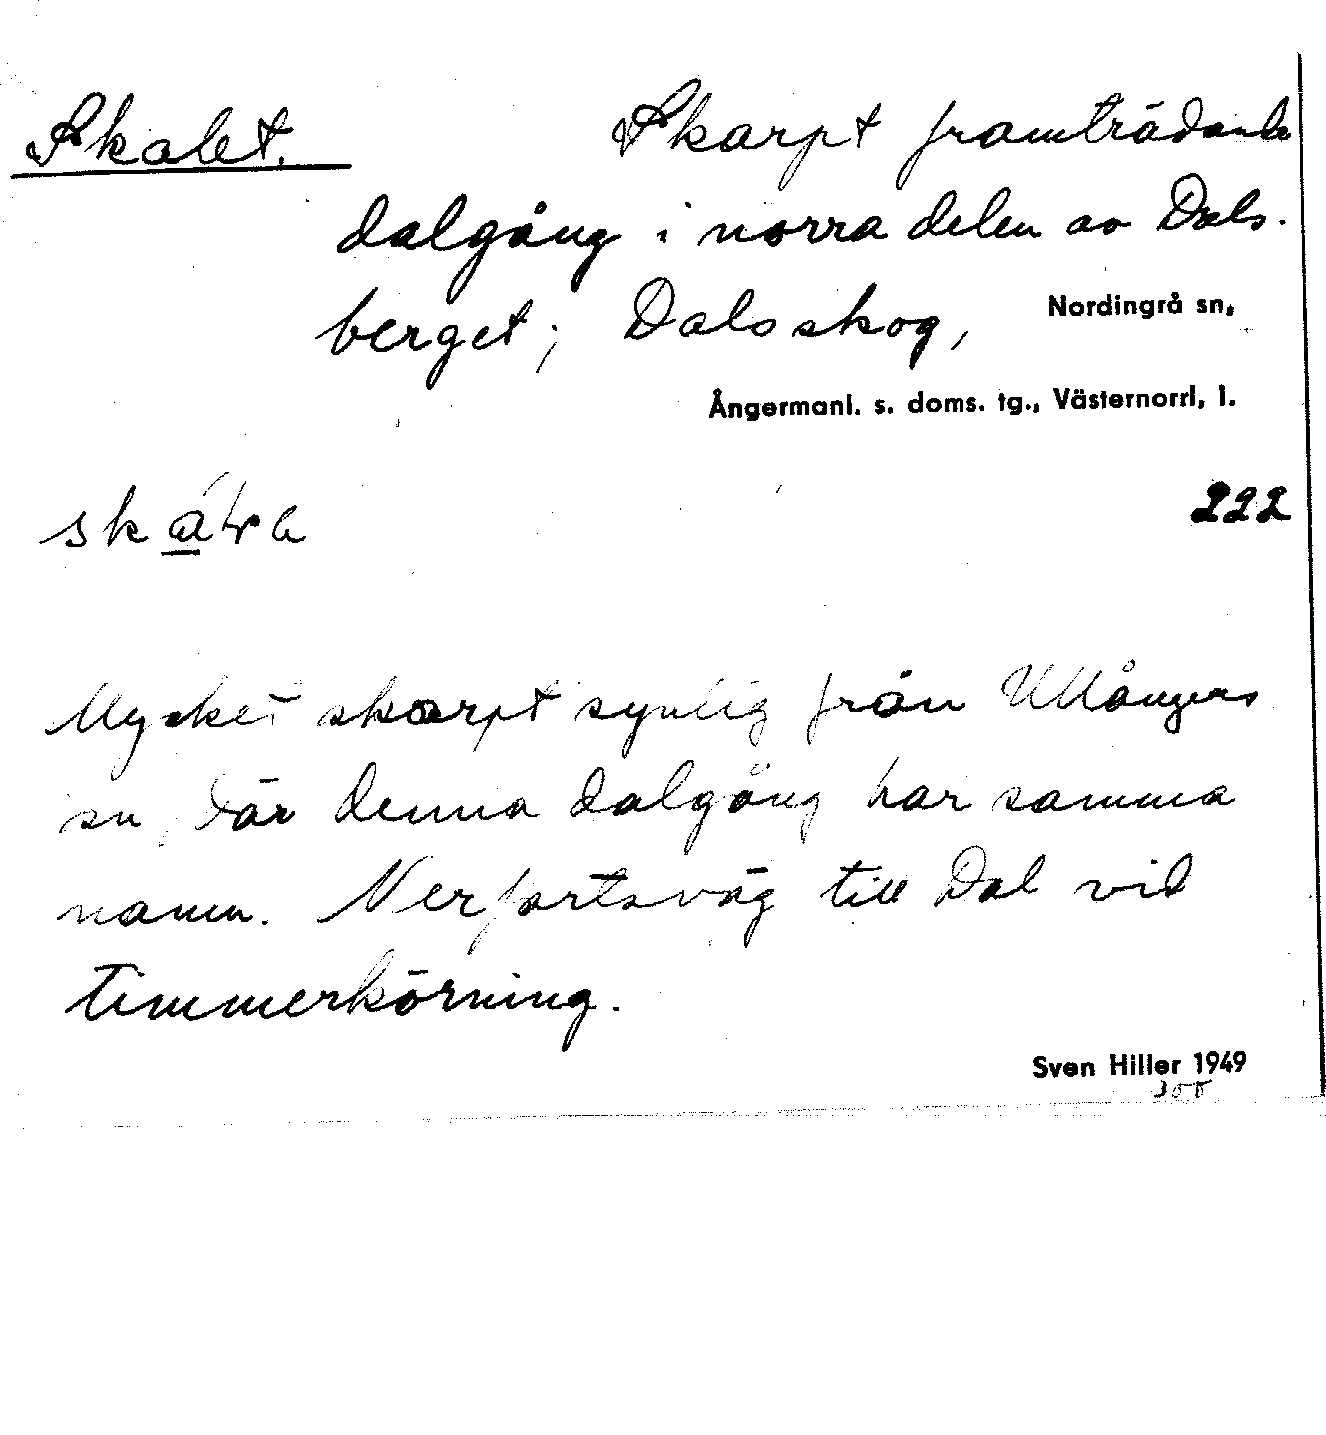 Skalet. Skarpt framträdande
dalgång i norra delen av Dals-
berget; Dalsskog, Nordingrå sn,
Ångermanl. s. doms. tg., Västernorrl, l.
222
Mycket skarpt synlig från Ullångers
sn, där denna dalgång har samma
namn. Nerfartsväg till Dal vid
timmerkörning.
Sven Hiller 1949